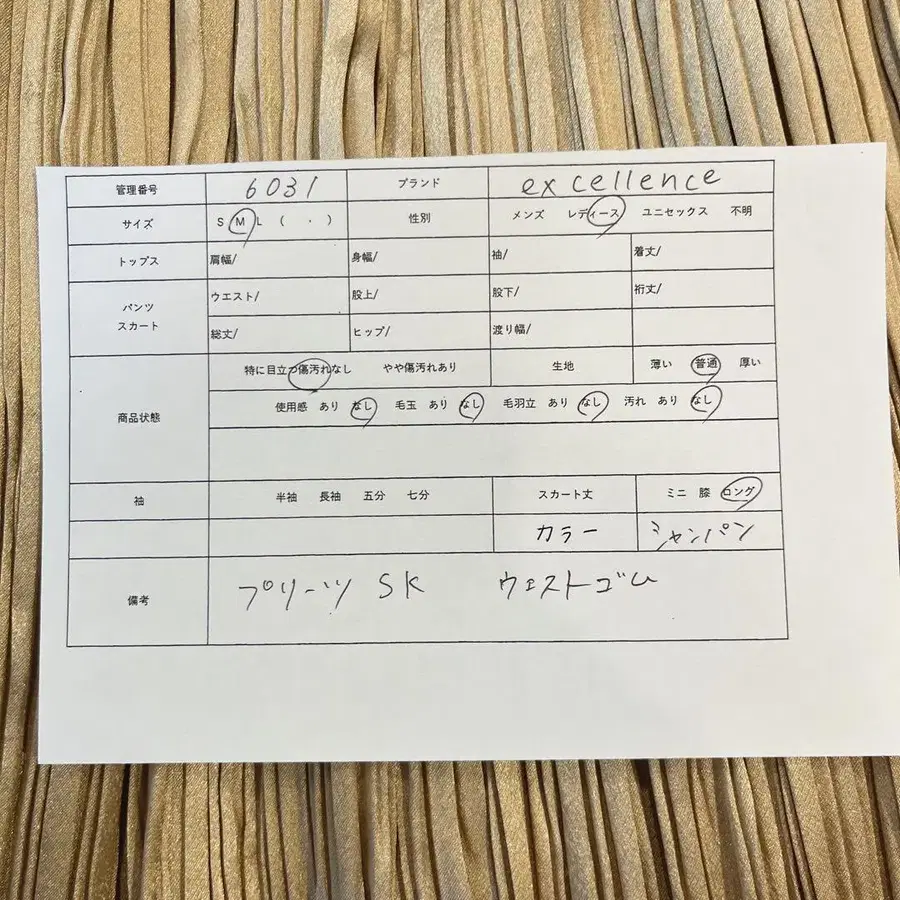 管理番号 6031 ブランド excellence
サイズ S M L ( ・ ) 性別 メンズ レディース ユニセックス 不明
トップス 肩幅/ 身幅/ 袖/ 着丈/
パンツ スカート ウエスト/ 股上/ 股下/ 裄丈/
総丈/ ヒップ/ 渡り幅/
商品状態 特に目立つ傷汚れなし やや傷汚れあり 生地 薄い 普通 厚い
使用感 あり なし 毛玉 あり なし 毛羽立 あり なし 汚れ あり なし
袖 半袖 長袖 五分 七分 スカート丈 ミニ 膝 ロング
カラー シャンパン
備考 プリーツ SK ウエストゴム